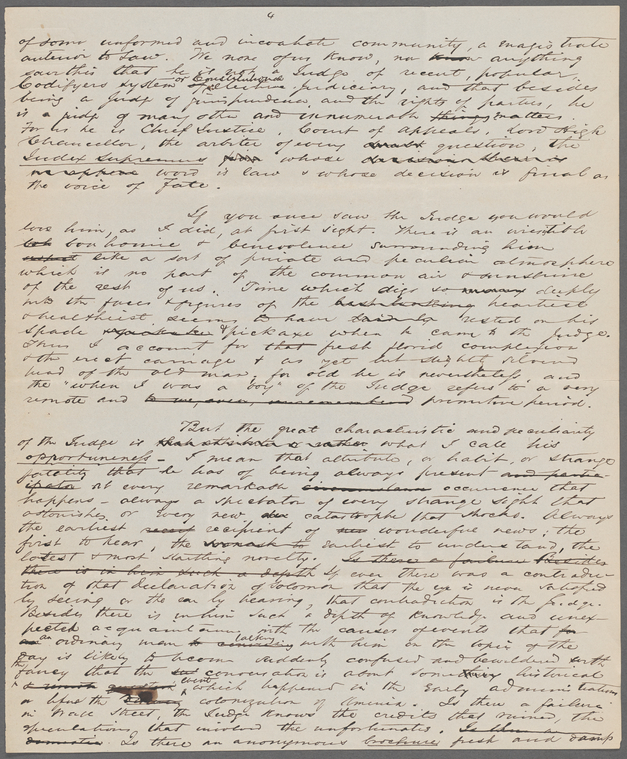 4
of some unformed and incoahate community, a magistrate
anterior to Law. We none of us know, no know anything
save this that he is not a Judge of recent, popular,
Codifyers system or Constitutional elective judiciary, and that besides
being a judge of jurisprudence, and the rights of parties, he
is a judge of many other and innumerable things matters.
For us he is Chief Justice, Court of appeals, Lord High
Chancellor, the arbiter of every question, the
Judex Supremus whose
word is law & whose decision is final as
the voice of Fate.
If you once saw the Judge you would
love him, as I did, at first sight. There is an
bonhomie & benevolence surrounding him
like a sort of private and peculiar atmosphere
which is no part of the common air & sunshine
of the rest of us. Time which digs so deeply
into the faces & figures of the best looking heartiest
& healthiest seems to have rested on his
spade & pickaxe when he came to the Judge.
Thus I account for that fresh florid complexion
& the erect carriage & as yet but slightly silvered
head of the old man, for old he is nevertheless, and
the "when I was a boy" of the Judge refers to a very
remote and primitive period.
But the great characteristic and peculiarity
of the Judge is what I call his
opportuneness – I mean that attribute, or habit, or strange
fatality that he has of being always present and partic-
ipator at every remarkable occurrence that
happens – always a spectator of every strange sight that
astonishes or every new catastrophe that shocks. Always
the earliest recipient of wonderful news; the
first to hear the earliest to understand, the
latest & most startling novelty. Is there a failure Besides
there is in him such a depth If ever there was a contradic-
tion of that declaration of Solomon that the eye is never satisfied
by seeing or the ear by hearing, that contradiction is the Judge.
Besides there is in him such a depth of knowledge and unex-
pected acquaintance with the causes of events that
an ordinary man talking with him on the topic of the
day is likely to become suddenly confused and bewildered with
the fancy that the conversation is about some historical
event which happened in the early administrations
or upon the colonization of America. Is there a failure
in Wall Street, the Judge knows the credits that ruined, the
speculations that involved the unfortunates.
domestic. Is there an anonymous brochure, fresh and damp